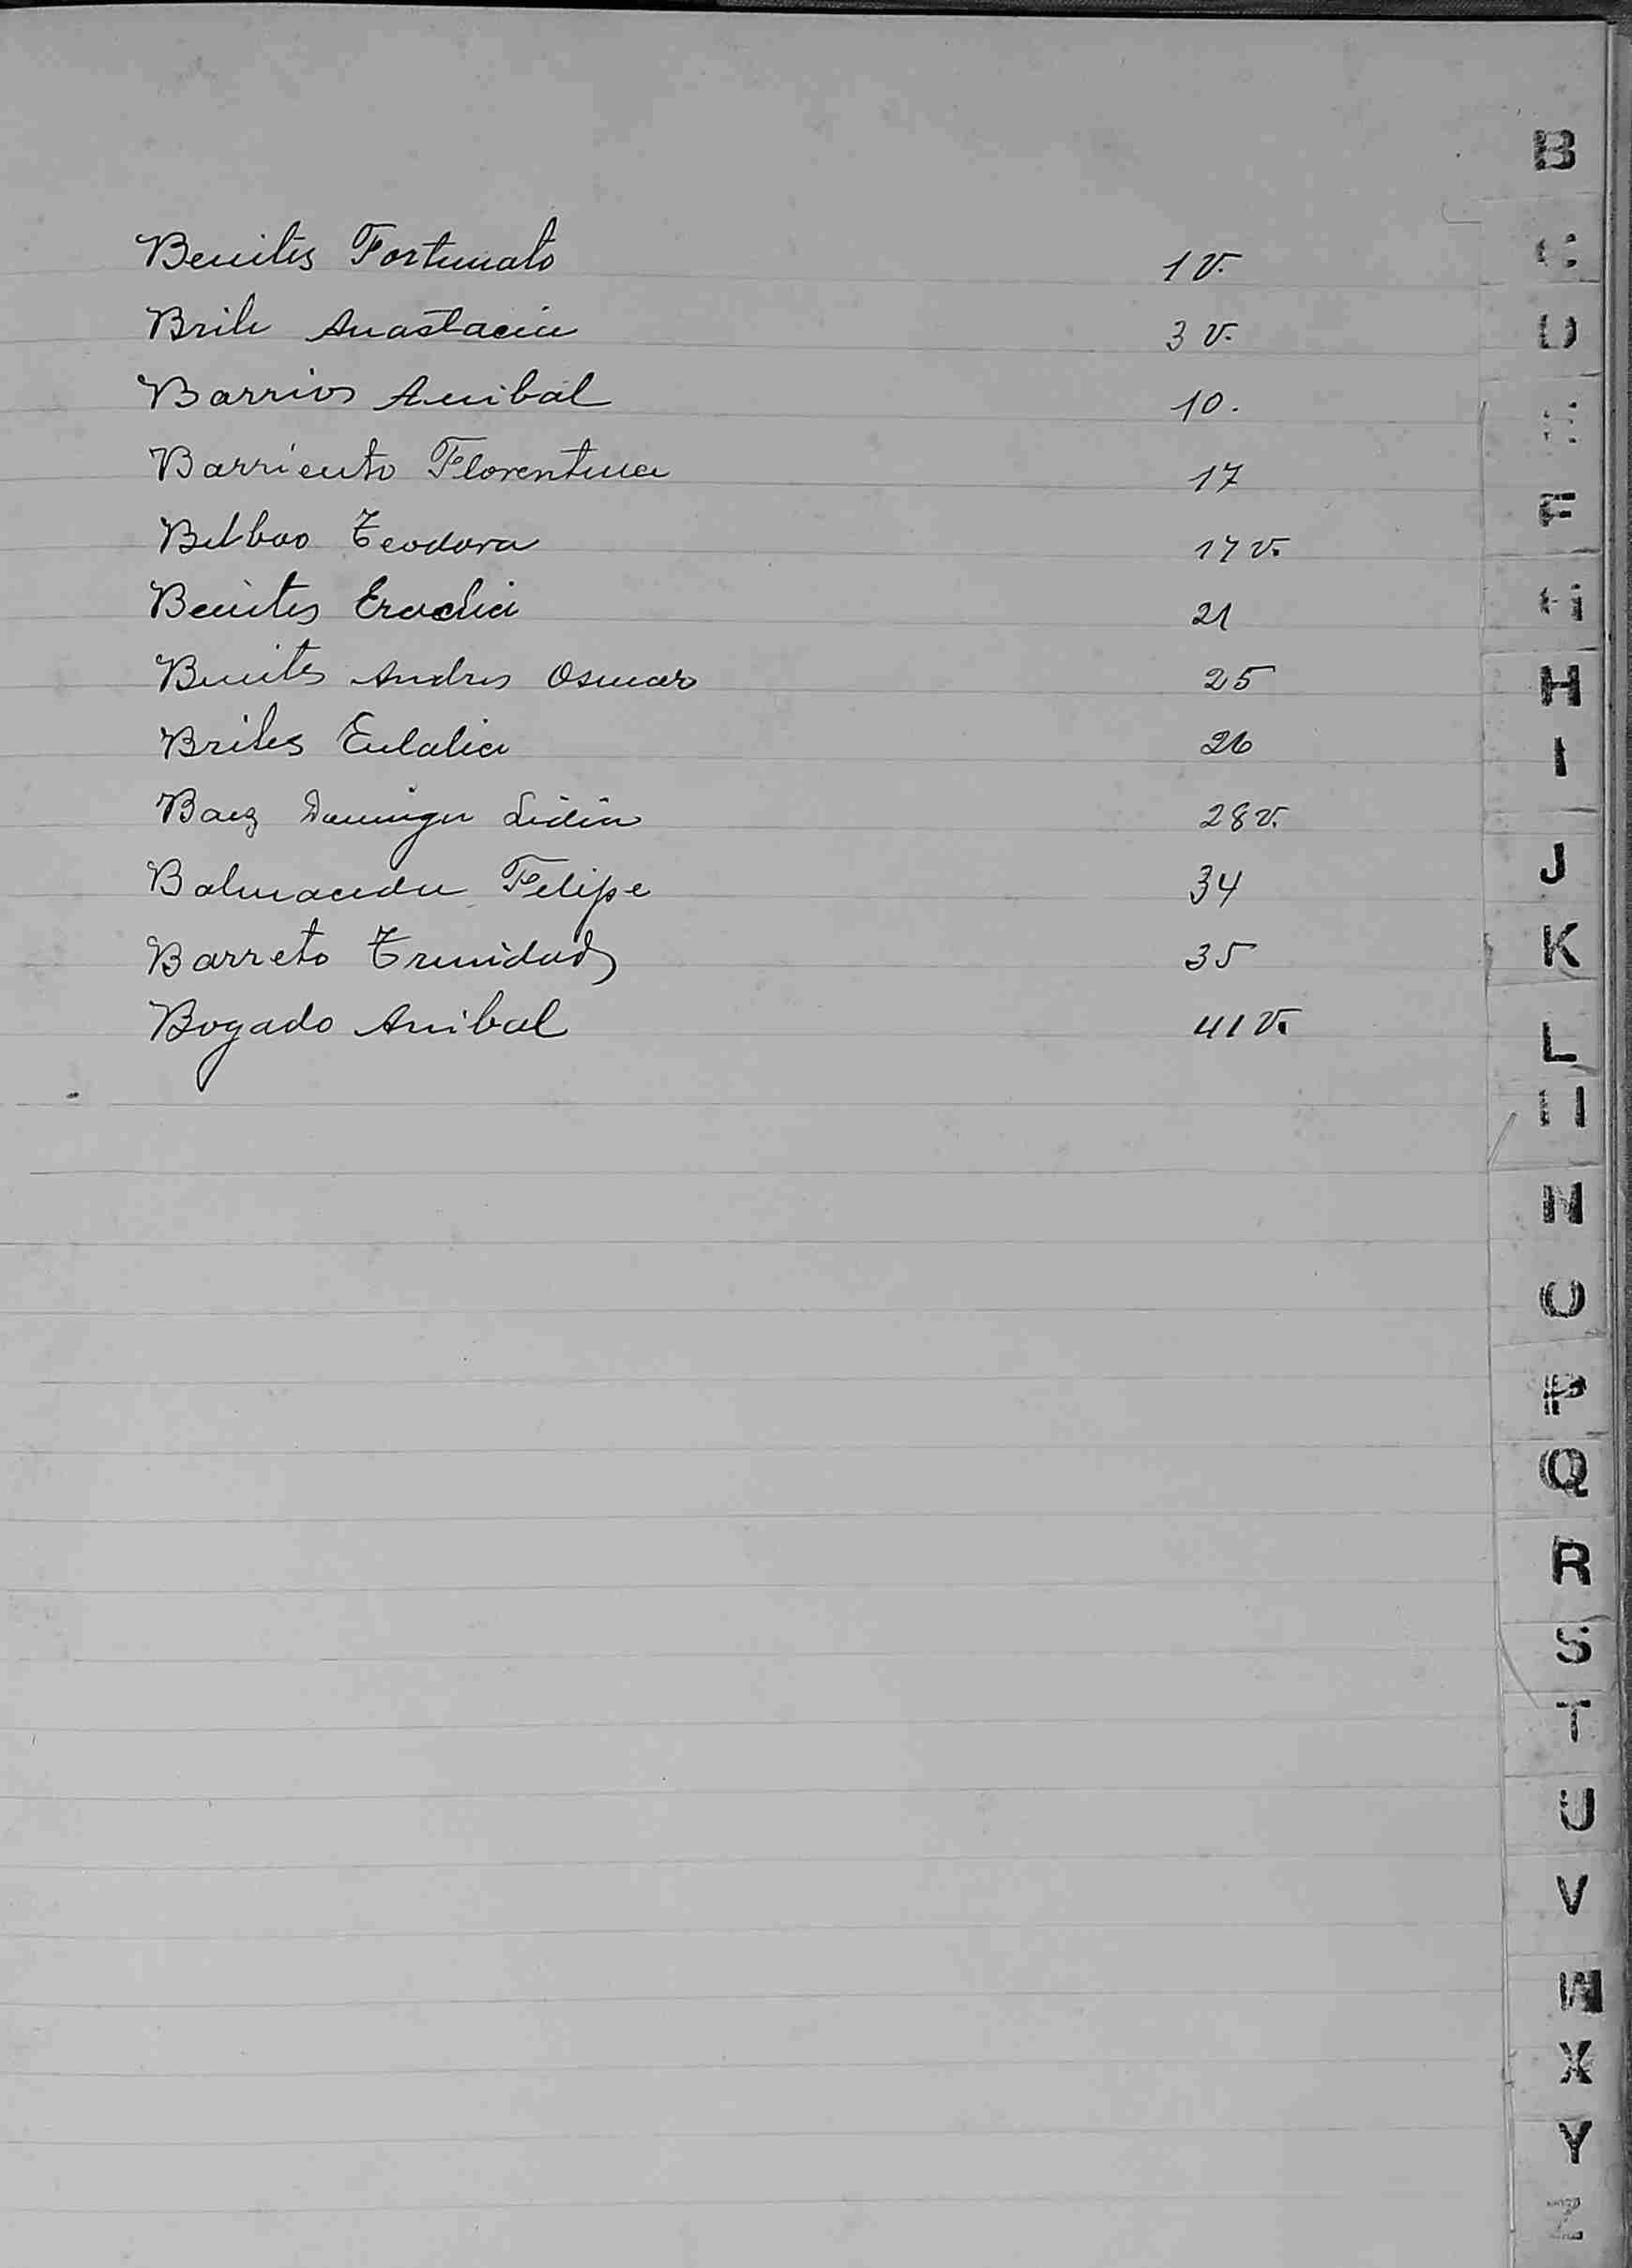 B
Benites Fortunato 1 v.
Brite Anastacia 3 v.
Barrios Anibal 10.
Barriento Florentina 17
Bilbao Teodora 17 v.
Benites Erodia 21
Benites Andres Osmar 25
Brites Eulalia 26
Baez Dominga Lidia 28 v.
Balmaceda Felipe 34
Barreto Trinidad 35
Bogado Anibal 41 v.
C
D
F
H
I
J
K
L
N
O
P
Q
R
S
T
U
V
W
X
Y
Z